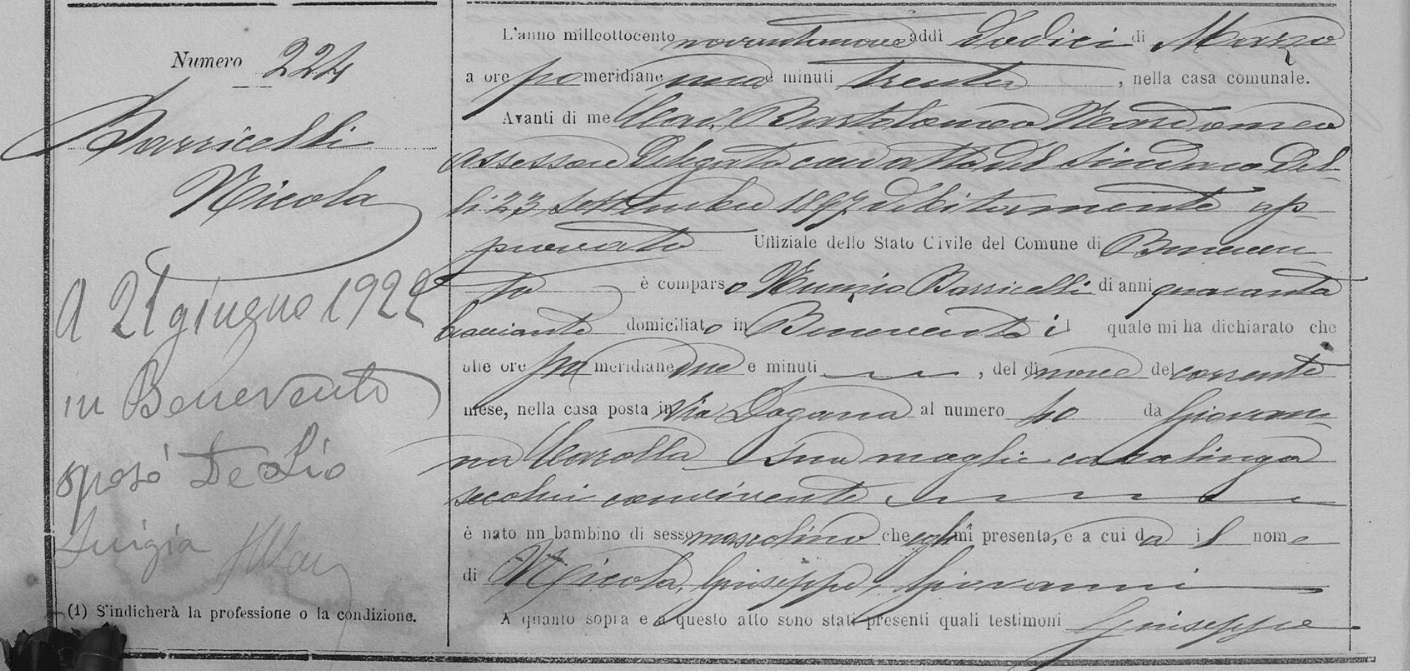 Numero 224
Barricelli
Nicola
A 21 giugno 1922
in Benevento
sposò De Lio
Luigia
(1) S'indicherà la professione o la condizione.
L'anno milleottocento novantanove addì dodici di Marzo
a ore pomeridiane una e minuti trenta, nella casa comunale.
Avanti di me Cav. Bartolomeo
Assessore delegato con atto del Sindaco del
li 23 settembre 1897 debitamente ap
provato Uffiziale dello Stato Civile del Comune di Beneven
to è comparso Nunzio Barricelli di anni quaranta
bracciante domiciliato in Benevento il quale mi ha dichiarato che
alle ore pomeridiane due e minuti , del dì nove del corrente
mese, nella casa posta in Via Dogana al numero da Giovan
na sua moglie casalinga
secolui convivente
è nato un bambino di sesso mascolino che egli mi presenta, e a cui da il nome
di Nicola, Giuseppe, Giovanni
A quanto sopra e a questo atto sono stati presenti quali testimoni Giuseppe